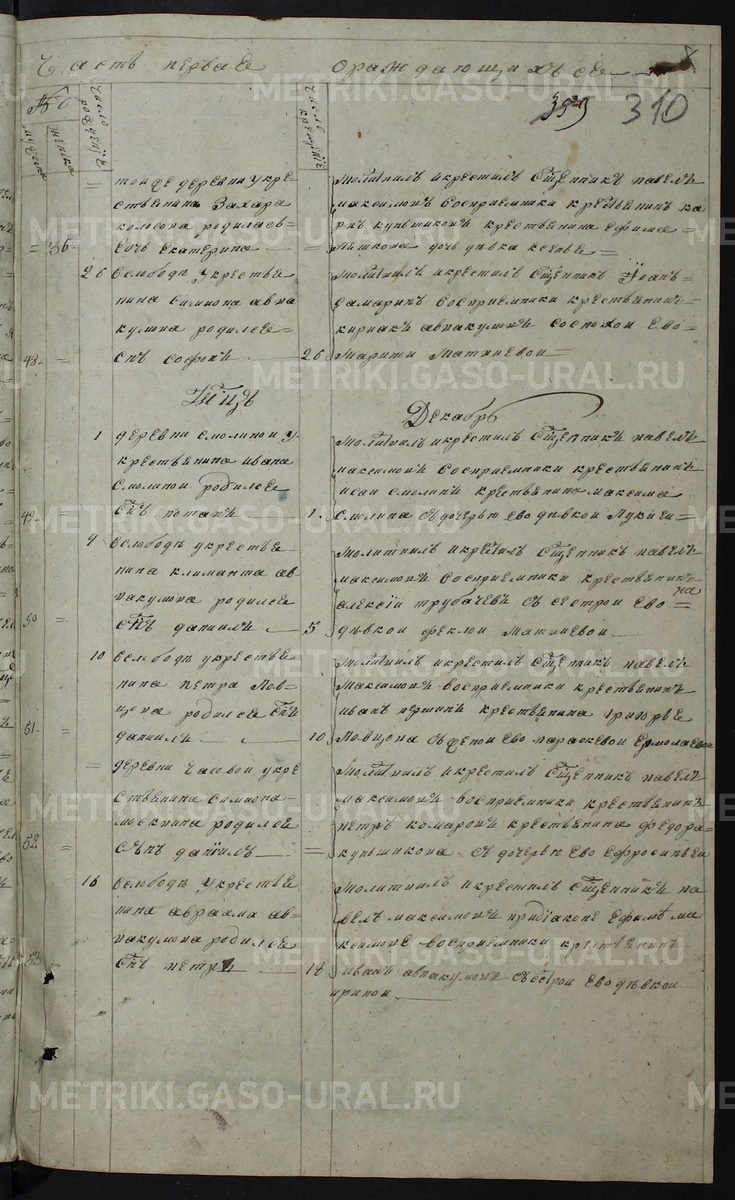 Часть первая
ораждающихъ сее
310
№
мужеска
женска
число рождения
число крещения
тоиже деревни укре-
ственина Захара
родилась
дочь Екатерина
36
молитвилъ икрестилъ Сщенникъ павелъ
максимовъ восприемники крественинъ ка
рпъ куншиковъ крественина ефима
дочь дѣвка
26
вслободѣ укрестье
нина симиона авва
кумова родилсее
снъ софонъ
48
26
молитвилъ икрестилъ Сщенникъ Iоан
самаринъ восприемники крественинъ
кириакъ авакумовъ соснохои Ево
Матвиевои
Декабрь
1
деревни смолинои у
крественина ивана
Смолина родилсее
Снъ потапъ
49
1
молитвилъ икрестилъ Сщенникъ павелъ
максимовъ восприемники крественинъ
исаи смолинъ крественина максима
смолина Сдочерью Ево дѣвкои Лукиеи
4
вслободѣ укрестве
нина климанта ав
вакумова родилсее
Снъ данилъ
50
5
молитвилъ икрестилъ Сщенникъ павелъ
максимовъ восприемники крественин
на
алексiи трубачевъ Съ сестрои Ево
дѣвкои феклои Матвиевои
10
вслободѣ укрестве
нина петра Лов-
цова родилсее Снъ
данилъ
51
10
молитвилъ икрестилъ Сщенникъ павелъ
Максимовъ восприемники крественинъ
иванъ першинъ крественина григорье
Ловцова Съ женои ево параскевои Ермолаевои
деревни Часовои укре
ственина Симиона
москвина родилсе
Снъ данiилъ
52
молитвилъ икрестилъ Сщенникъ павелъ
максимовъ восприемники крественинъ
петръ комаровъ крественина федора
куншикова Съ дочерью Ево Ефросиньеи
16
вслободѣ укрестье
нина авраама ав-
вакумова родилсее
Снъ петръ
53
18
молитвилъ икрестилъ Сщенникъ па
велъ максимовъ придiаконе Ефимѣ ма
ксимове восприемники крественинъ
иванъ аввакумовъ Съ Сестрои Ево дѣвкои
ириnoи
METRIKI.GASO-URAL.RU